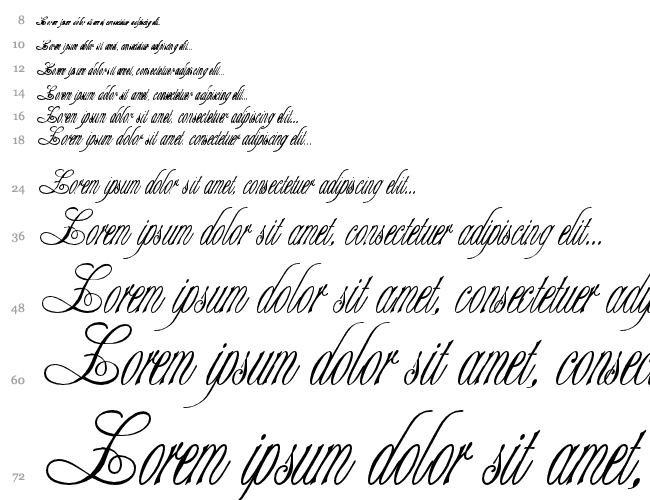 8 Lorem ipsum dolor sit amet, consectetuer adipiscing elit...
10 Lorem ipsum dolor sit amet, consectetuer adipiscing elit...
12 Lorem ipsum dolor sit amet, consectetuer adipiscing elit...
14 Lorem ipsum dolor sit amet, consectetuer adipiscing elit...
16 Lorem ipsum dolor sit amet, consectetuer adipiscing elit...
18 Lorem ipsum dolor sit amet, consectetuer adipiscing elit...
24 Lorem ipsum dolor sit amet, consectetuer adipiscing elit...
36 Lorem ipsum dolor sit amet, consectetuer adipiscing elit...
48 Lorem ipsum dolor sit amet, consectetuer adip
60 Lorem ipsum dolor sit amet, consec
72 Lorem ipsum dolor sit amet,